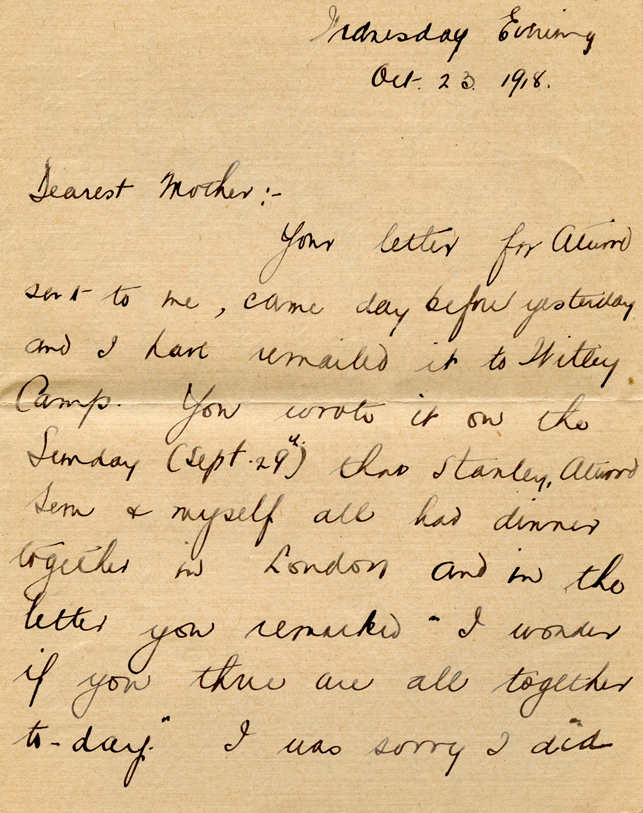 Wednesday Evening
Oct. 23 1918.
Dearest Mother:-
Your letter for Atwood
sent to me, came day before yesterday
and I have remailed it to Witley
Camp. You wrote it on the
Sunday (Sept. 29th) that Stanley, Atwood
Lem & myself all had dinner
together in London and in the
letter you remarked "I wonder
if you three are all together
to-day." I was sorry I did